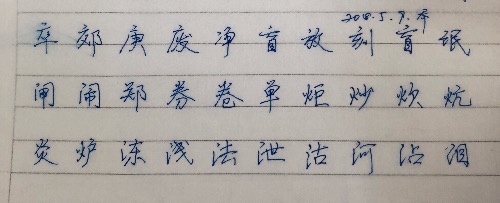 2018.5.9.本
卒郊庚废净盲放刻盲氓
闸闹郑券卷单炬炒炊炕
炎炉冻浅法泄沽河沾泪